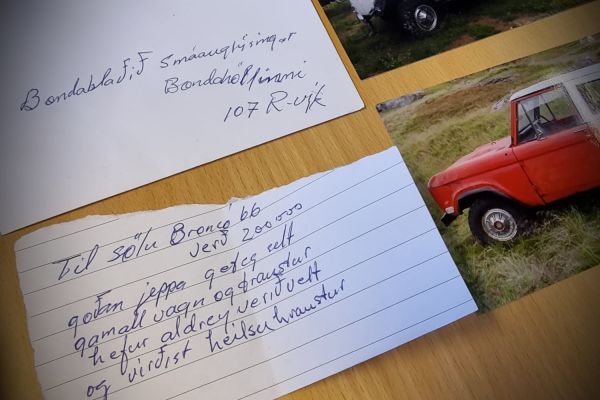 Bondablaðið smáauglýsingar
Bondahöllinni
107 R-vik
Til sölu Bronco 66
verð 200000
goðan jeppa get eg selt
gamall vagn og traustur
hefur aldrey verið velt
og virðist heilsuhraustur